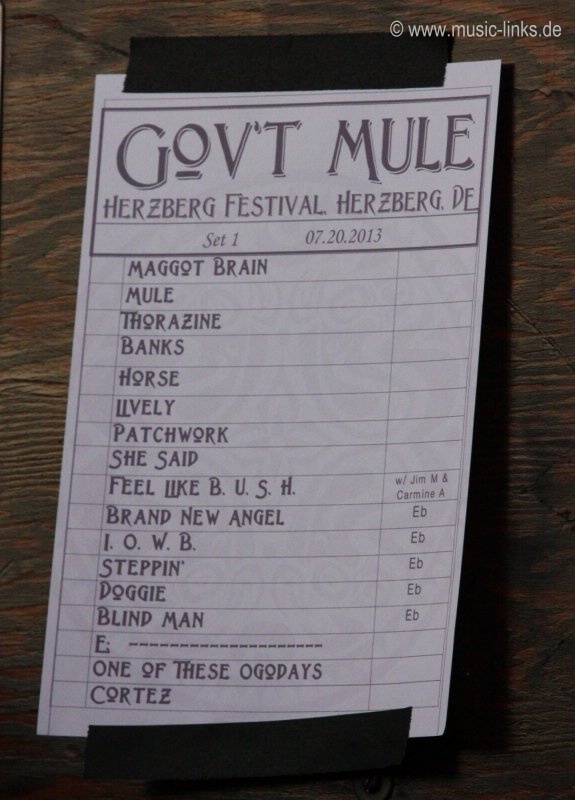 © www.music-links.de
GOV'T MULE
HERZBERG FESTIVAL, HERZBERG, DE
Set 1 07.20.2013
MAGGOT BRAIN
MULE
THORAZINE
BANKS
HORSE
LIVELY
PATCHWORK
SHE SAID
FEEL LIKE B. U. S. H. w/ Jim M & Carmine A
BRAND NEW ANGEL Eb
I. O. W. B. Eb
STEPPIN' Eb
DOGGIE Eb
BLIND MAN Eb
E: --------------------
ONE OF THESE OGODAYS
CORTEZ